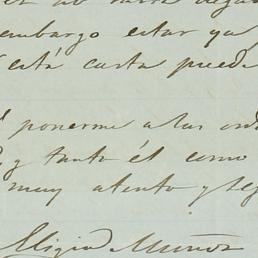 embargo estar ya
está carta puede
ponerme a las ord
y tanto él como
muy atento y seg
Eligio Muñoz